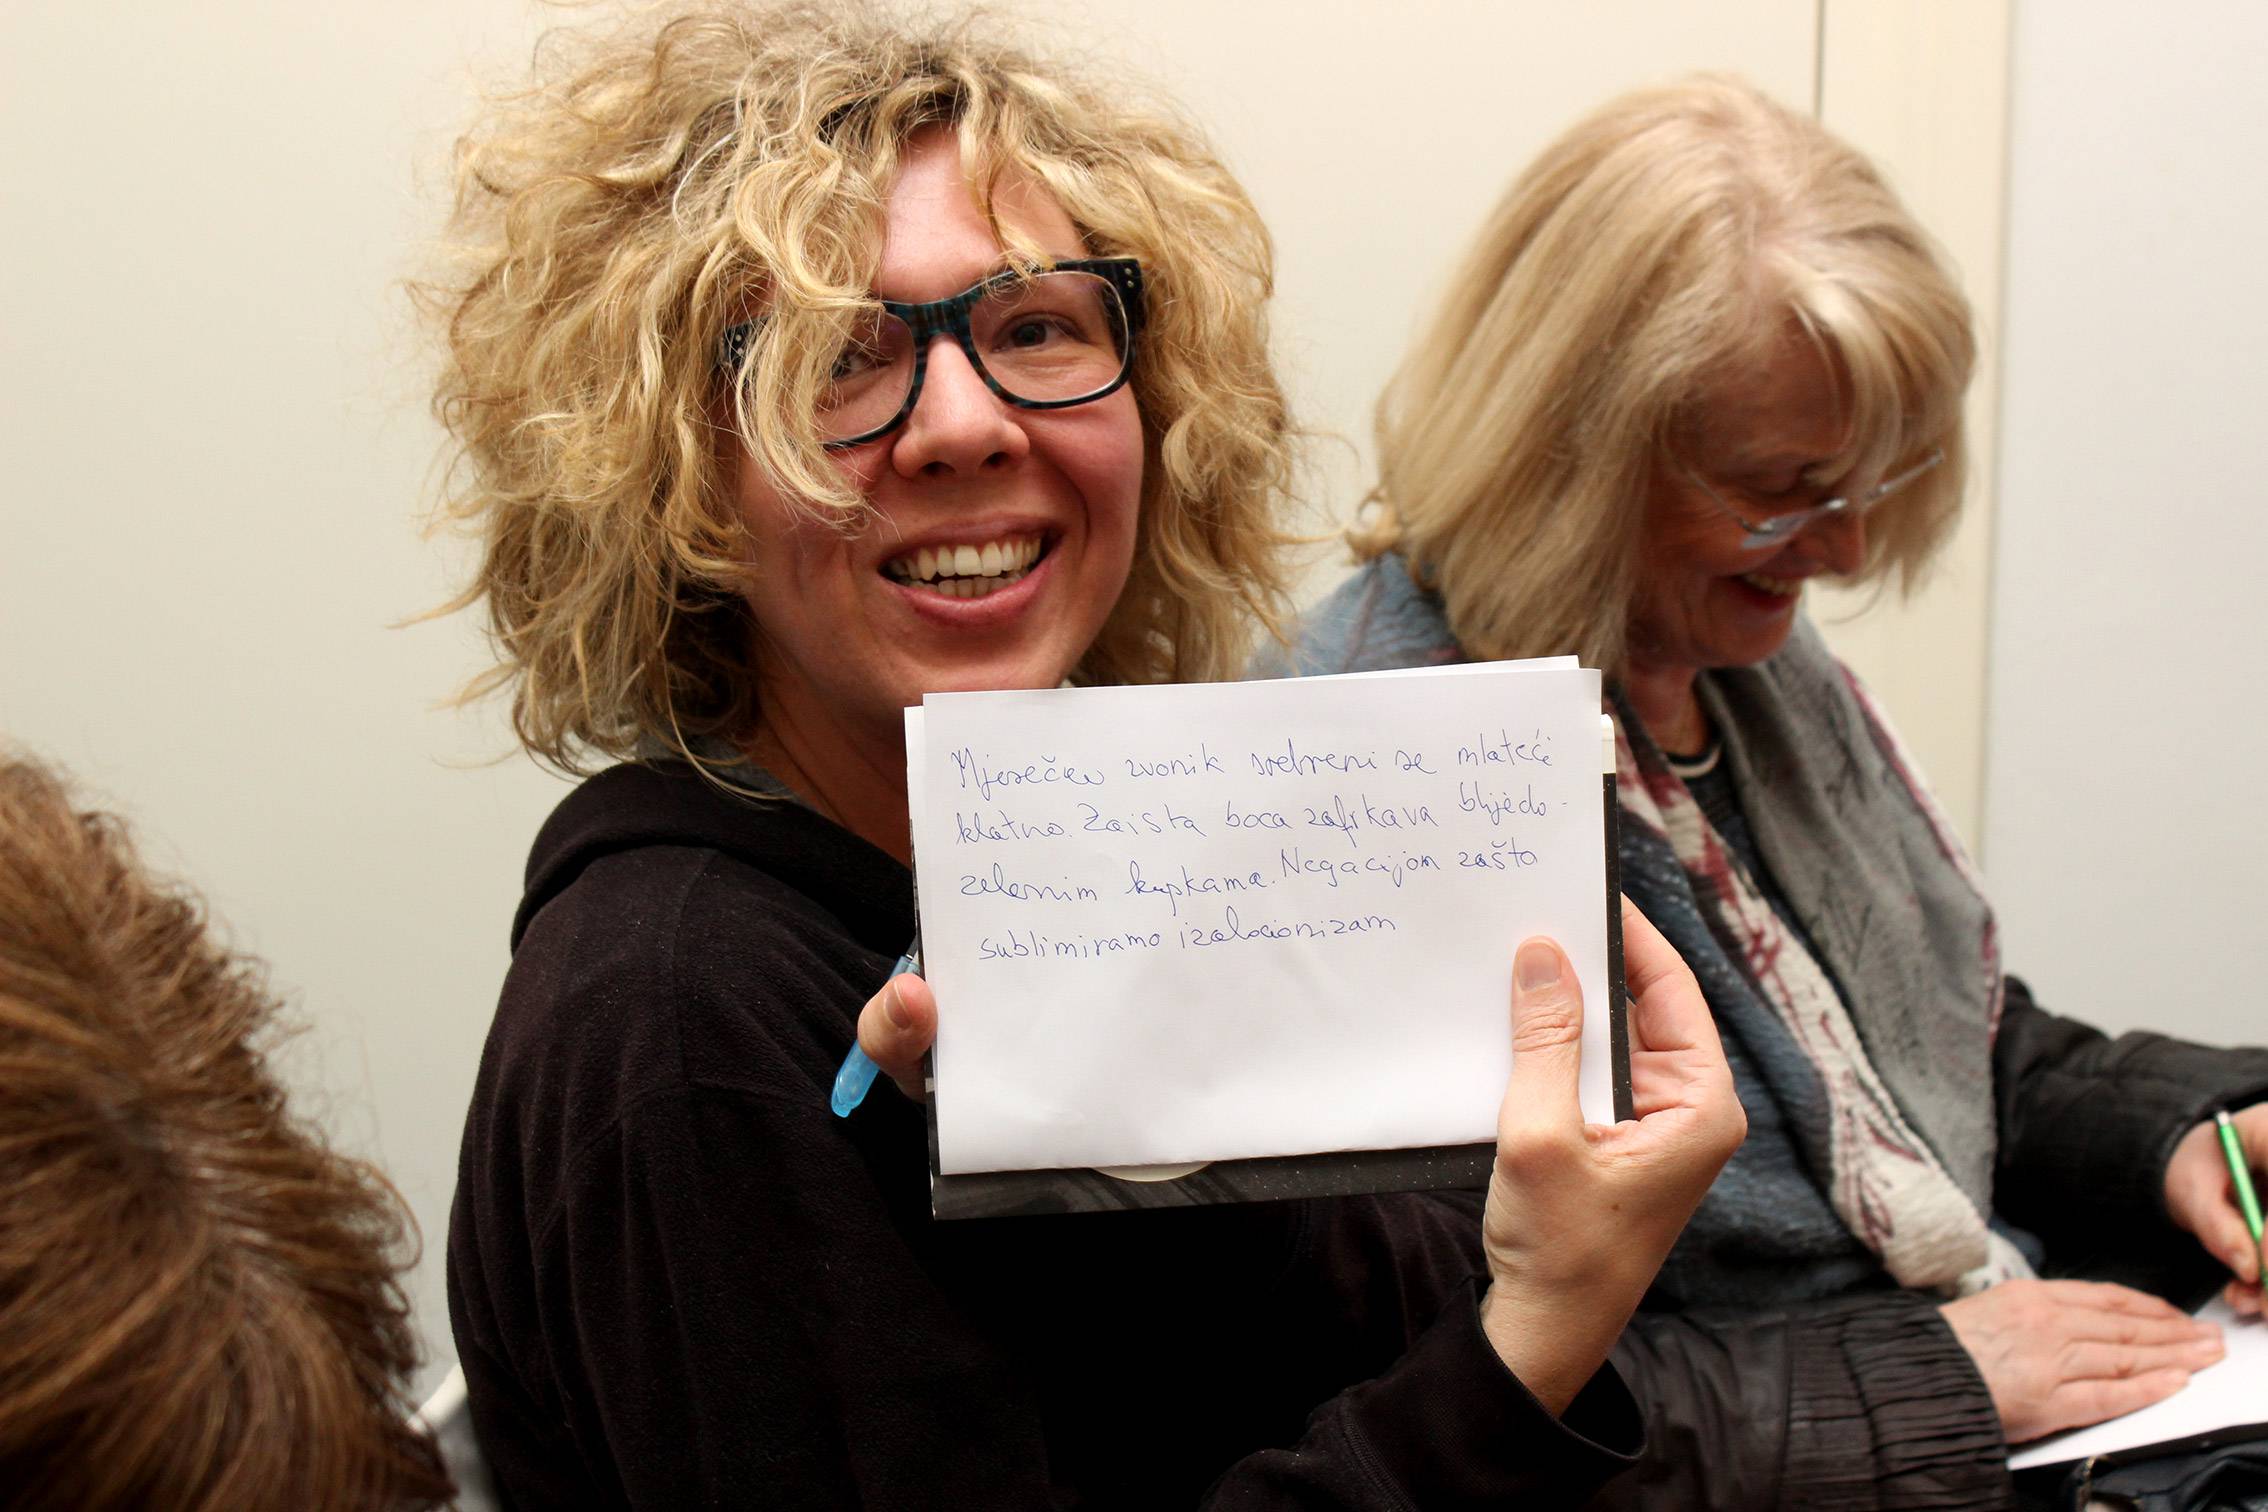 Mjesečev zvonik srebreni se mlateći
klatno. Zaista boca zafrkava blijedo-
zelenim kupkama. Negacijom zašto
sublimiramo izolacionizam